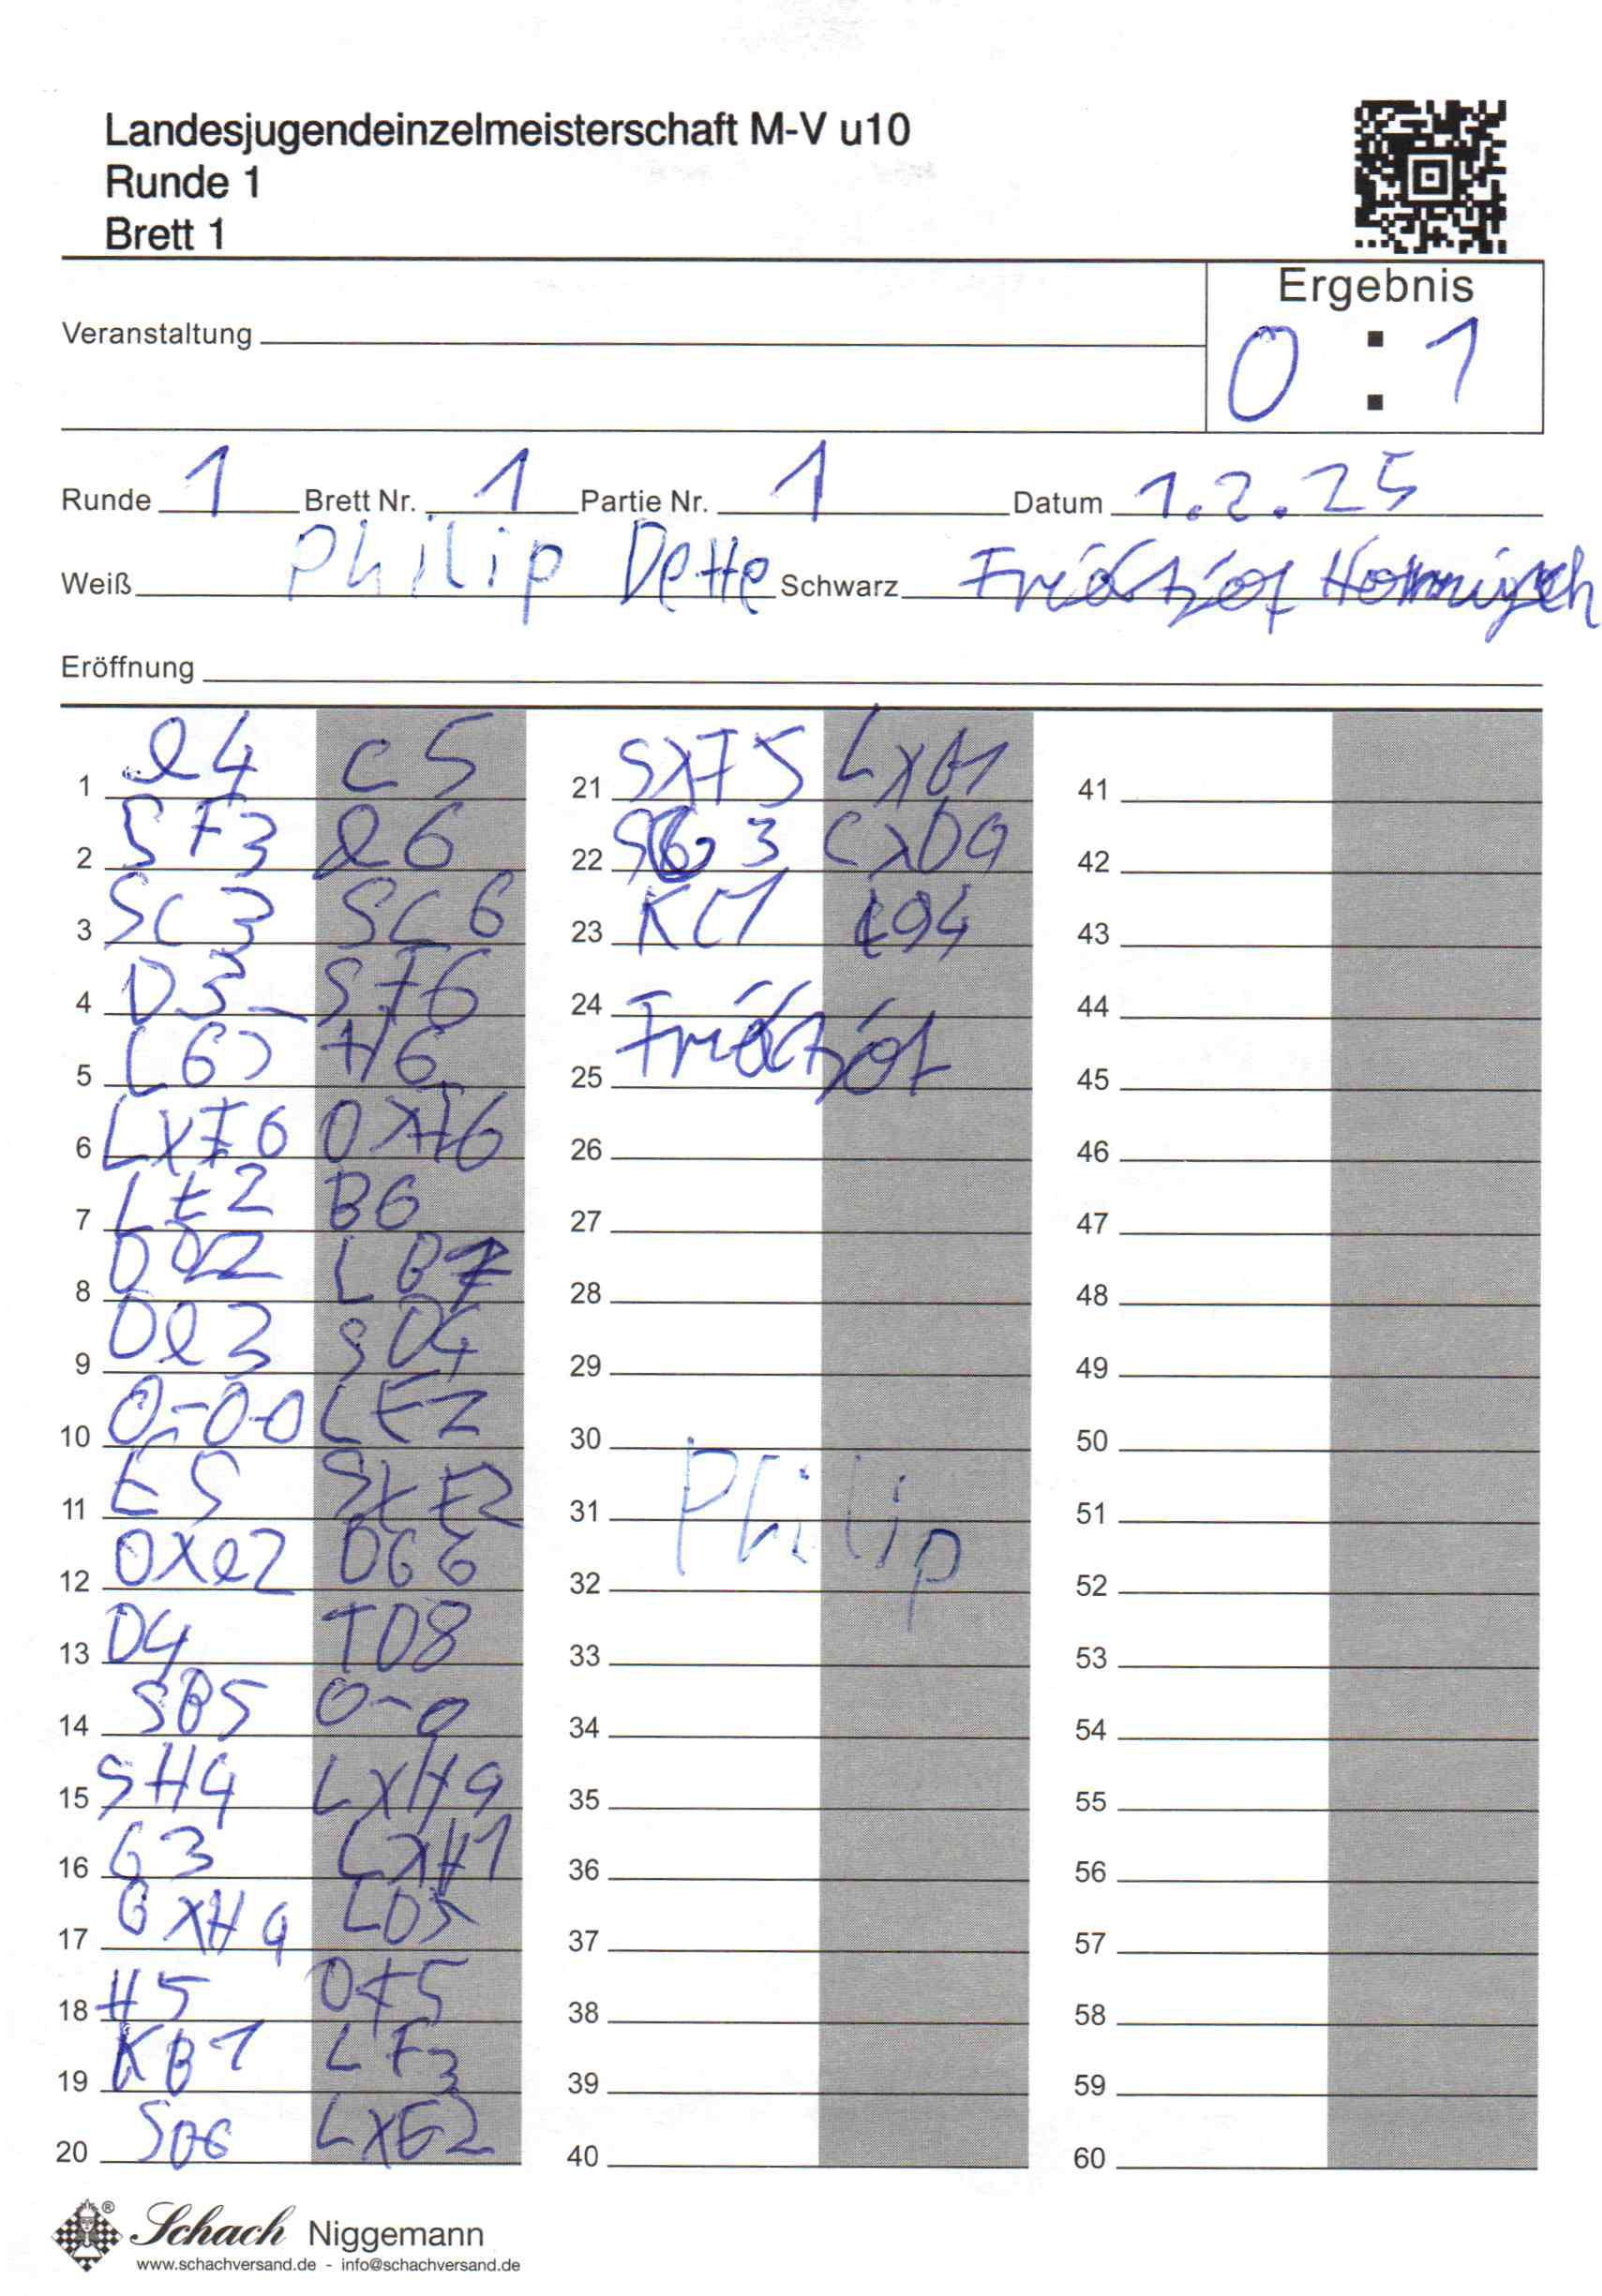 Landesjugendeinzelmeisterschaft M-V u10
Runde 1
Brett 1
Ergebnis
Veranstaltung
0 : 1
Runde 1 Brett Nr. 1 Partie Nr. 1 Datum 1.2.25
Weiß Philip Dette Schwarz
Eröffnung
1 e4 c5
2 SF3 e6
3 SC3 SC6
4 D3 SF6
5 LG5 H6
6 LXF6 DXF6
7 LE2 B6
8 DD2 LB7
9 De3 SD4
10 0-0-0 LE7
11 E5 SXE2
12 DXe2 DG6
13 D4 TD8
14 SB5 0-0
15 SH4 LXH4
16 G3 LXH1
17 GXH4 LD5
18 H5 DF5
19 KB1 LF3
20 SD6 LXE2
21 SXF5 LXD1
22 SG3 CXD4
23 KC1
24
25 Fridtjof
26
27
28
29
30
31 Philip
32
33
34
35
36
37
38
39
40
41
42
43
44
45
46
47
48
49
50
51
52
53
54
55
56
57
58
59
60
Schach Niggemann
www.schachversand.de - info@schachversand.de